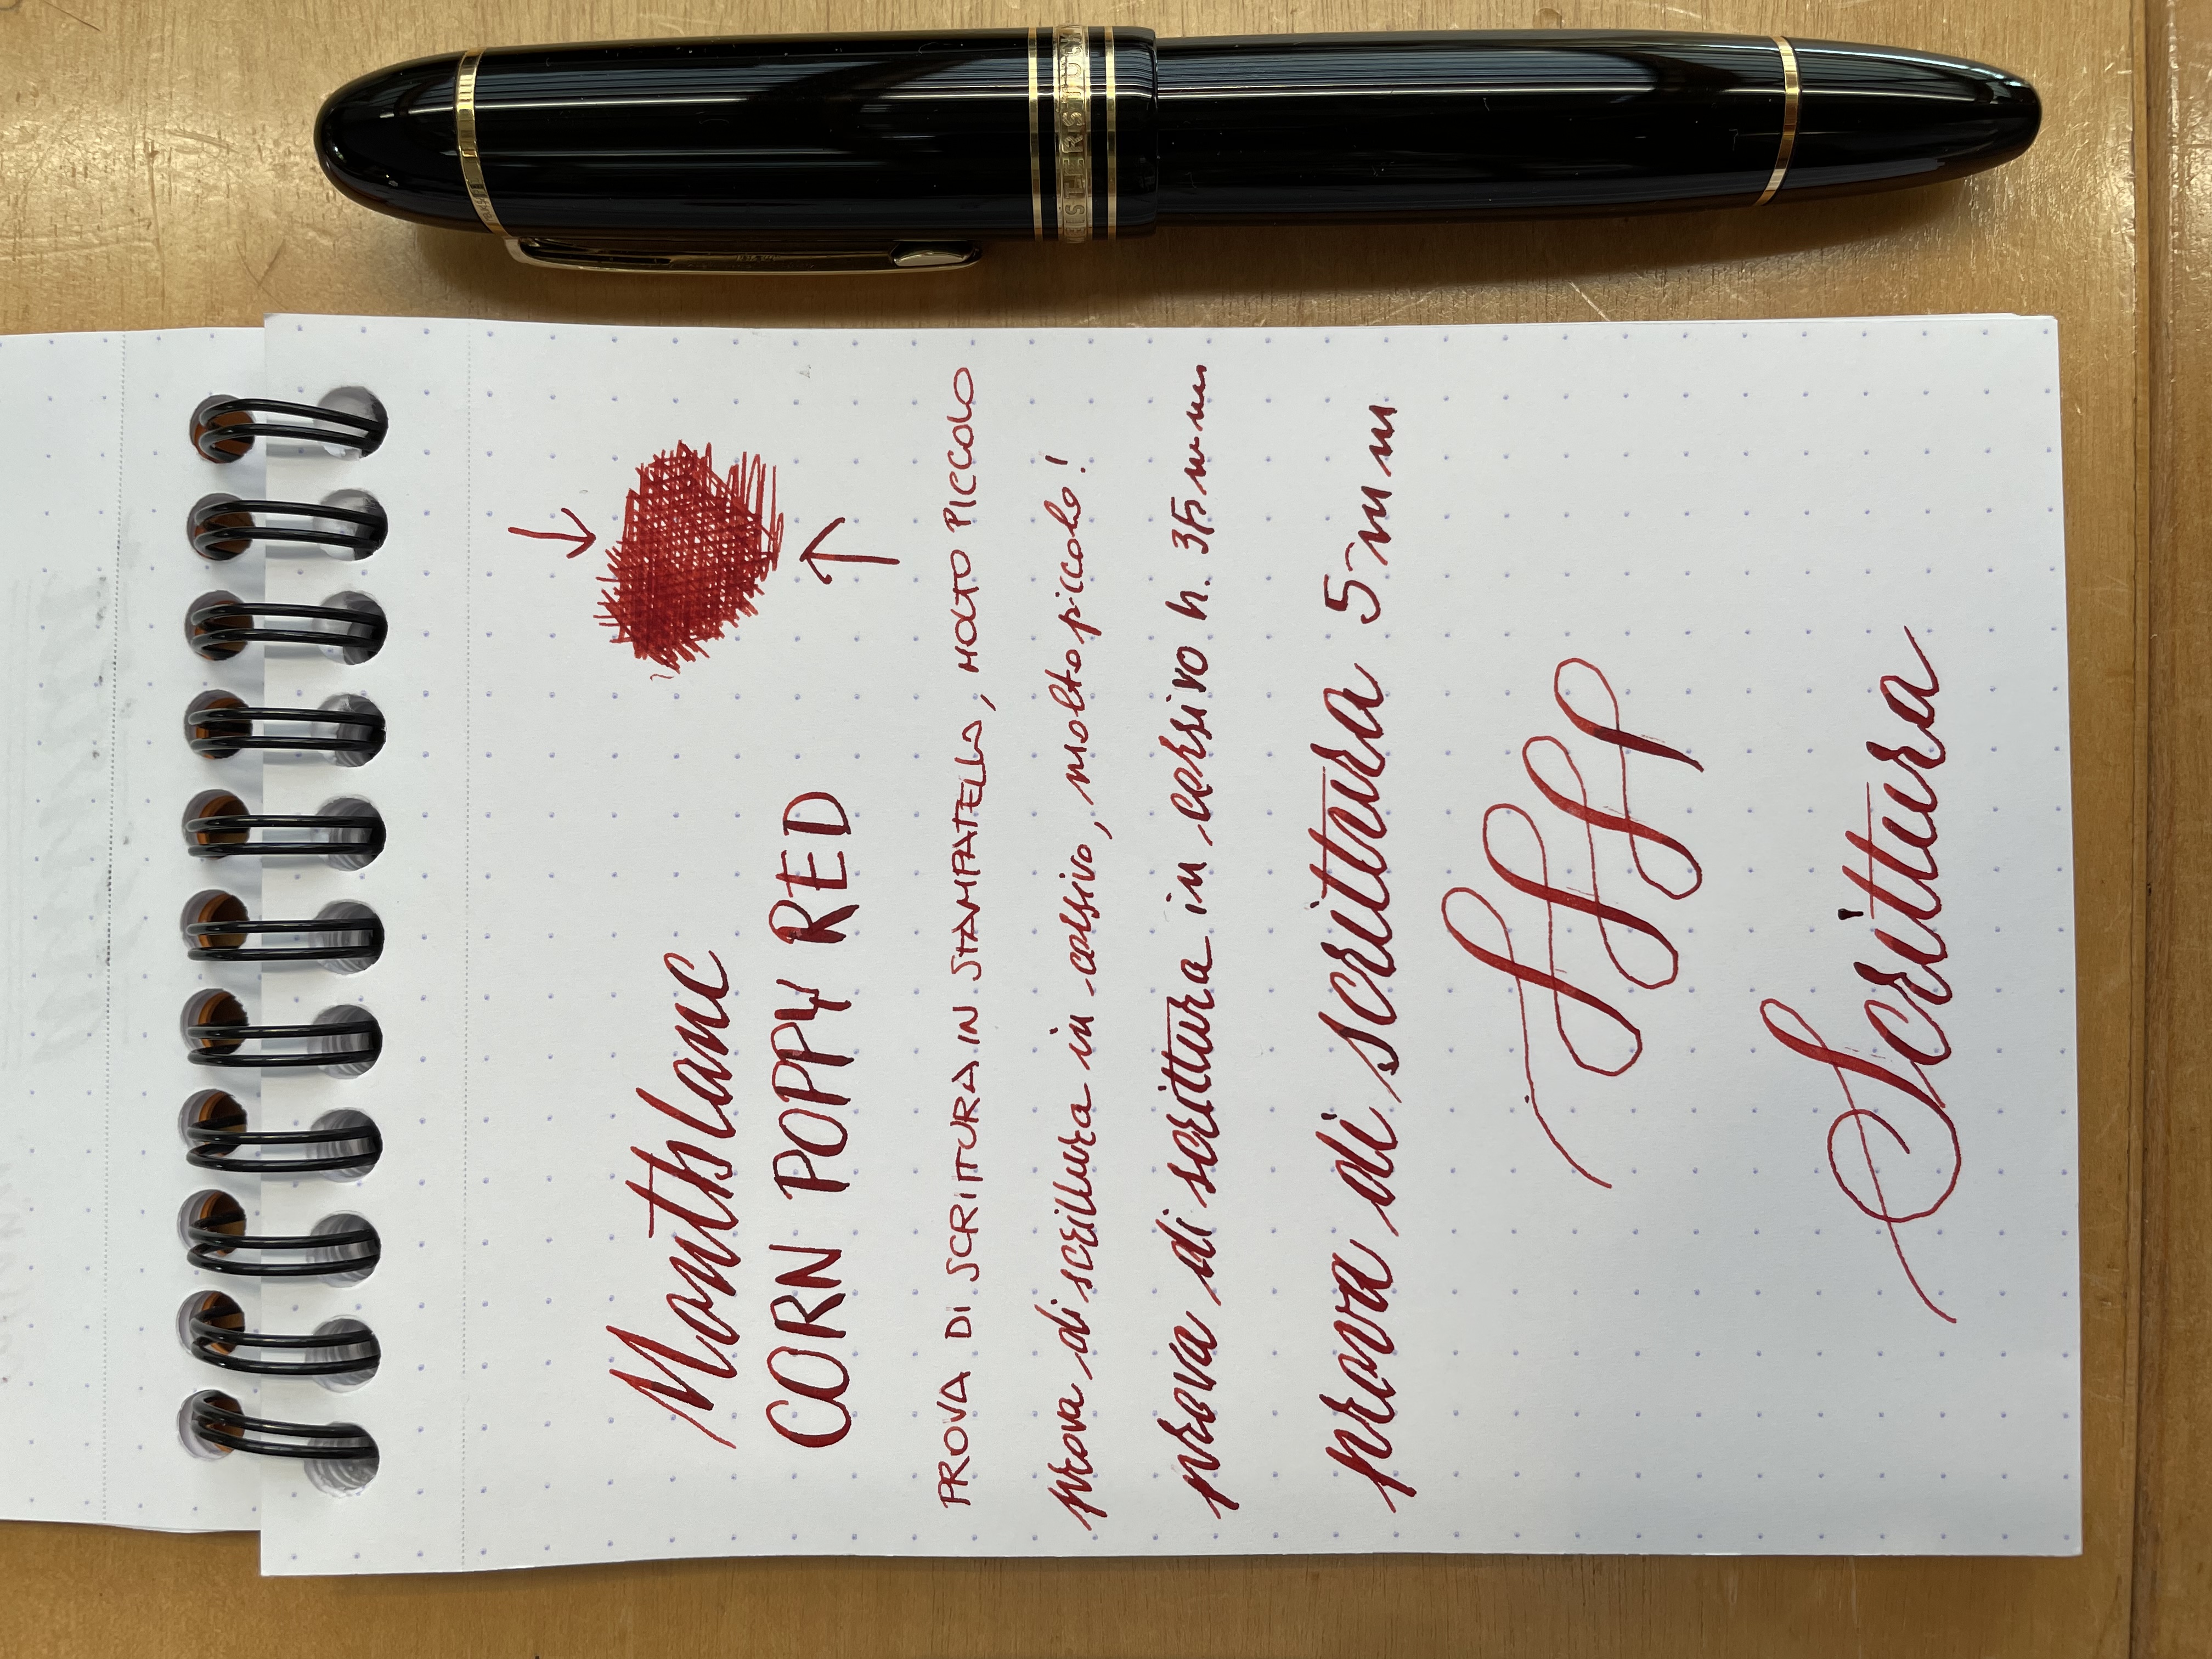 MEISTERSTÜCK
Montblanc
CORN POPPY RED
PROVA DI SCRITTURA IN STAMPATELLO, MOLTO PICCOLO
prova di scrittura in corsivo, molto piccolo!
prova di scrittura in corsivo h. 3/5 mm
prova di scrittura 5mm
Scrittura